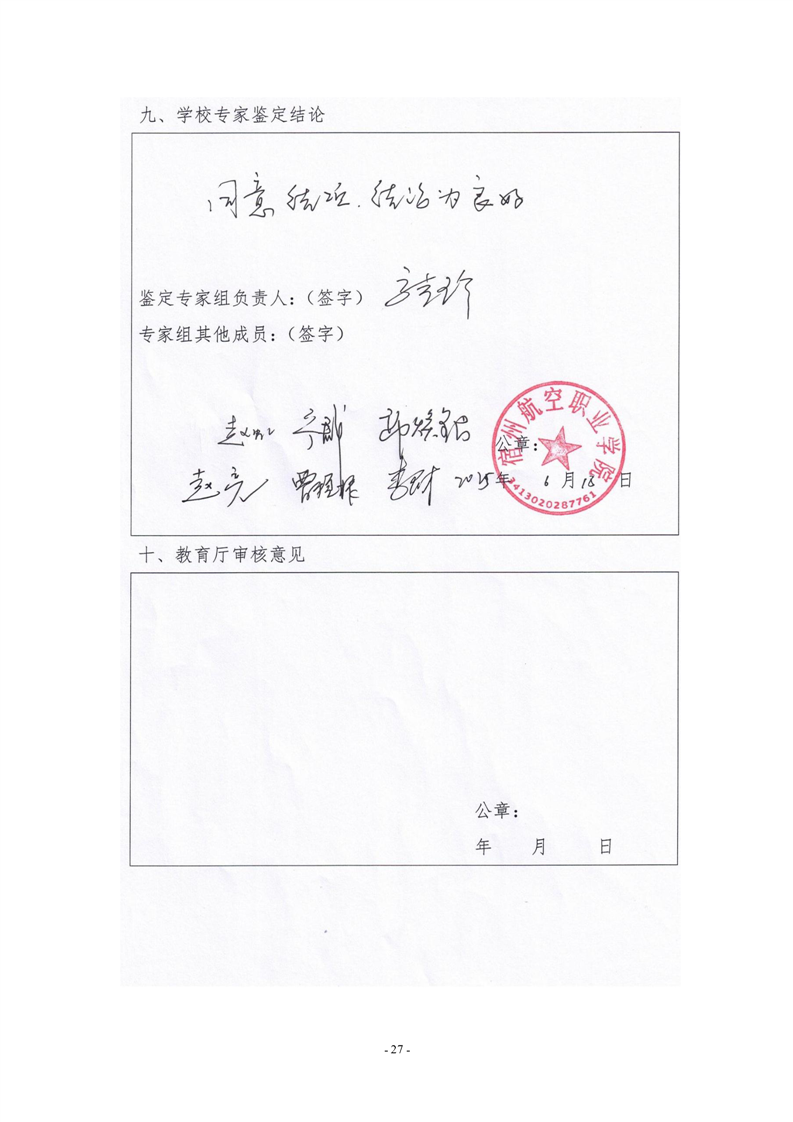 九、学校专家鉴定结论
同意结项.结论为良好
鉴定专家组负责人:(签字)
专家组其他成员:(签字)
宿州航空职业学院
公章:
赵亮
2025年 6月18日
3413020287761
十、教育厅审核意见
公章:
年 月 日
- 27 -